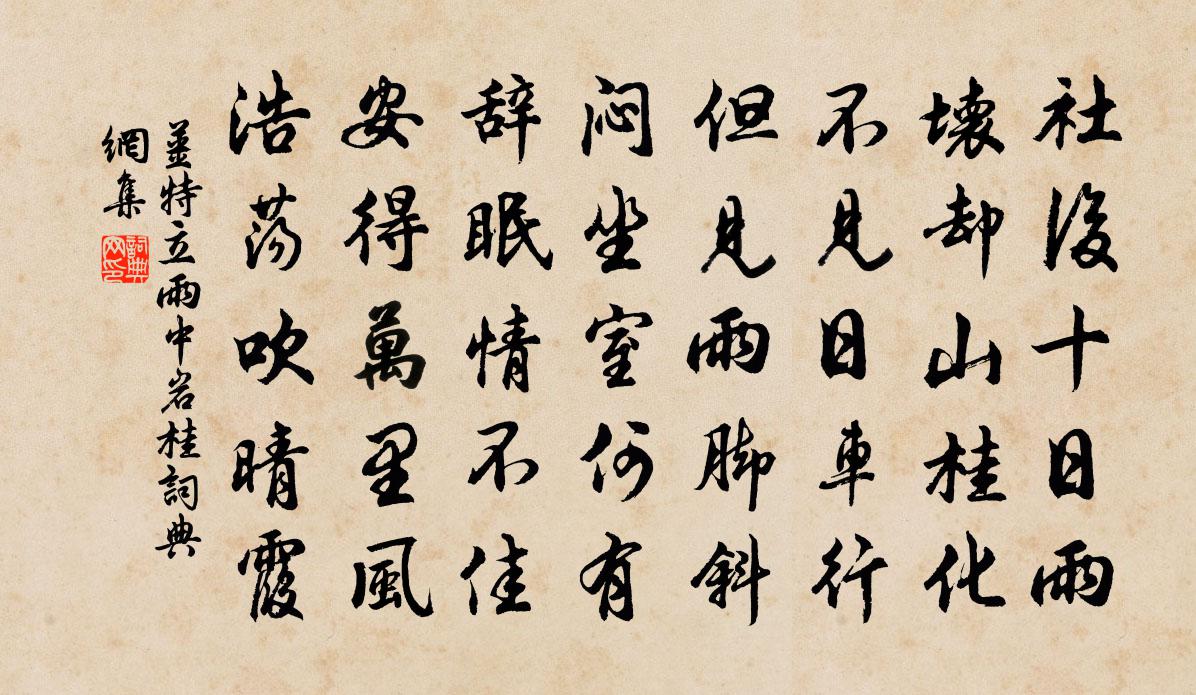 社後十日雨
壞却山桂化
不見日車行
但見雨脚斜
闷坐室何有
辞眠情不佳
安得萬里風
浩蕩吹晴霞
姜特立雨中岩桂詞典
網集
詞典
网印